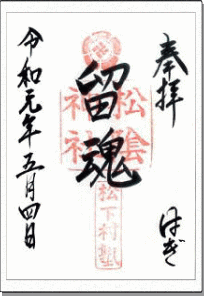 奉拝
はぎ
留魂
松陰
神社
松下村塾
令和元年五月四日